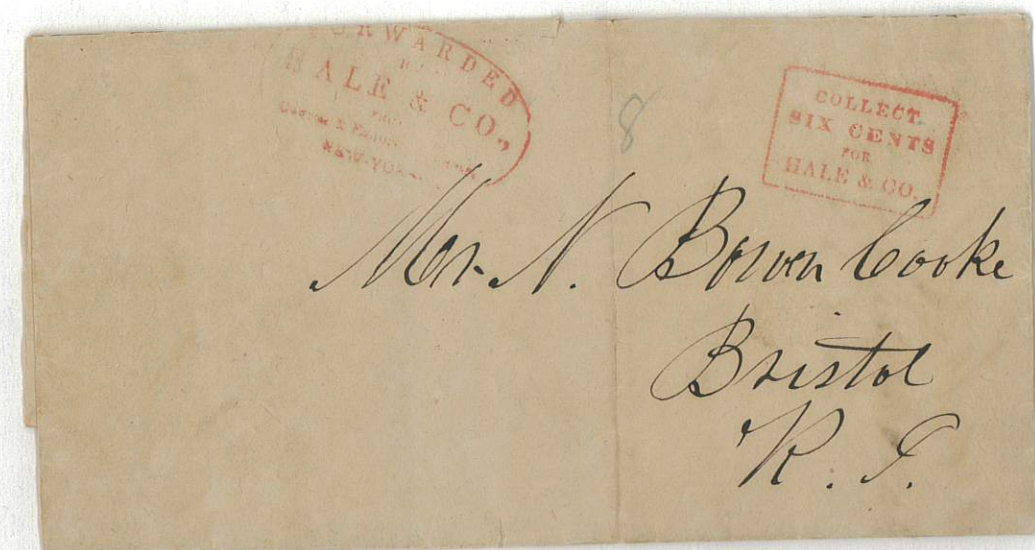 FORWARDED
HALE & CO.,
NEW-YORK
COLLECT
SIX CENTS
FOR
HALE & CO.
8
Mr. N. Bowen Cooke
Bristol
R. I.